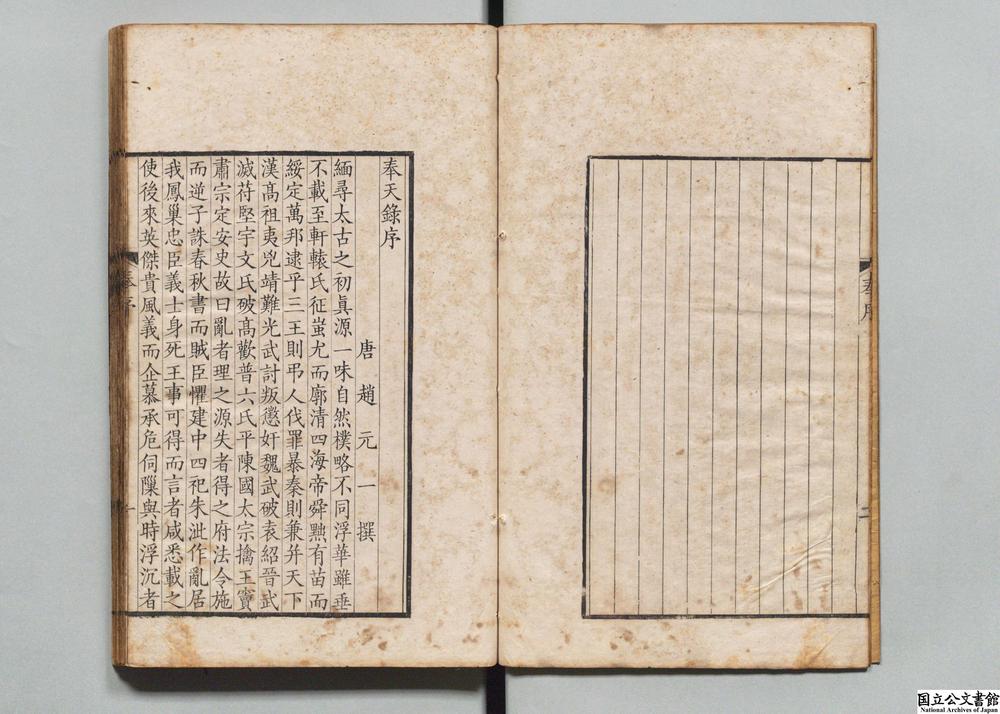 奉天錄序
唐趙元一撰
緬尋太古之初眞源一味自然樸略不同浮華雖垂
不載至軒轅氏征蚩尤而廓清四海帝舜㷠有苗而
綏定萬邦逮乎三王則弔人伐罪暴秦則兼并天下
漢髙祖夷兇靖難光武討叛懲奸魏武破袁紹晉武
滅苻堅宇文氏破髙歡普六氏平陳國太宗擒王竇
肅宗定安史故曰亂者理之源失者得之府法令施
而逆子誅春秋書而賊臣懼建中四祀朱泚作亂居
我鳳巢忠臣義士身死王事可得而言者咸悉載之
使後來英傑貴風義而企慕承危伺隟與時浮沉者
奉序
一
二
国立公文書館
National Archives of Japan